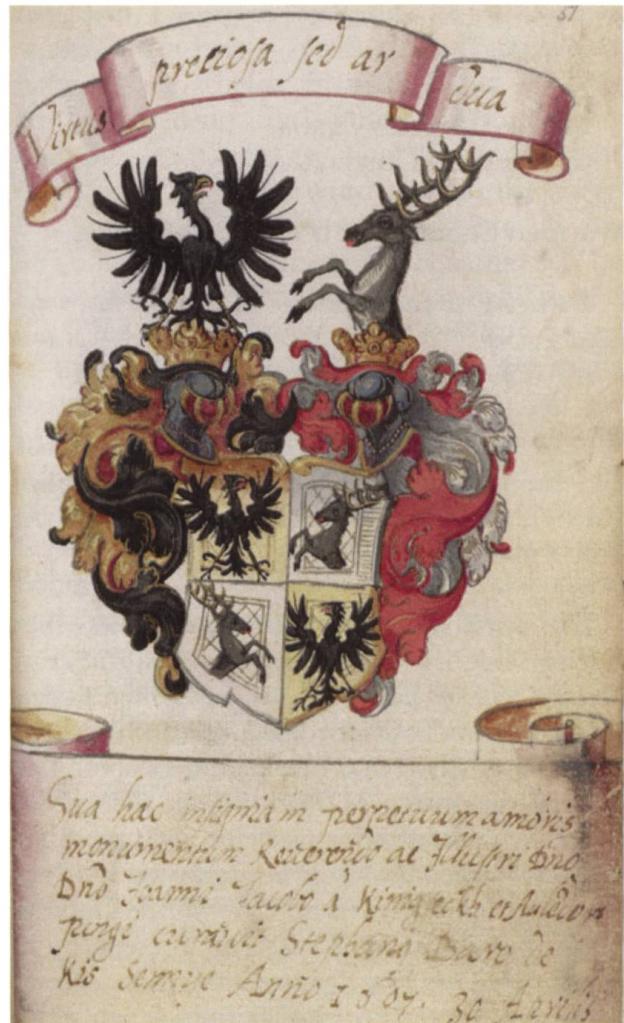 51
Virtus preciosa sed ar dua
Sua hac insignia in perpetuum amoris
monumentum Reverendo ac Illustri Dno
Dno Joanni Jacobo à Kinigseckh et
pingi curavit Stephanus Baro de
Kis Anno 1587. 30